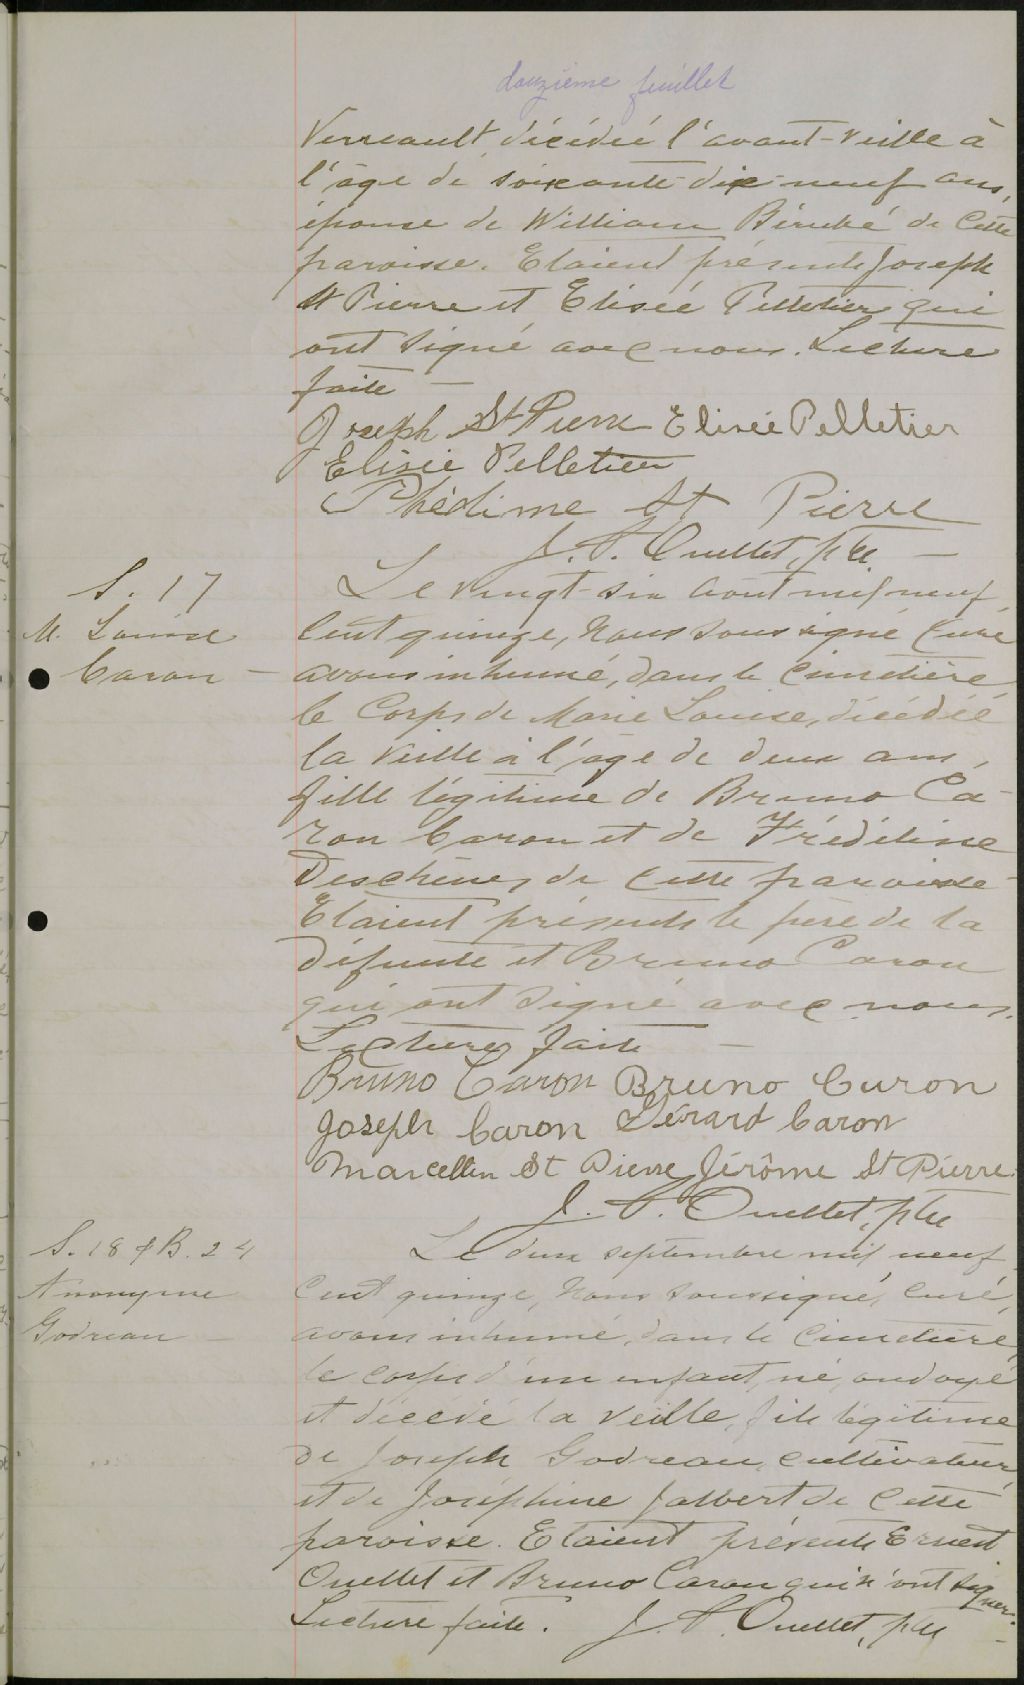 douzième feuillet
Verreault décédée l'avant-veille à
l'âge de soixante-dix-neuf ans,
épouse de William Bérubé de cette
paroisse. Etaient présents Joseph
St Pierre et Elisée Pelletier qui
ont signé avec nous. Lecture
faite —
Joseph St Pierre Elisée Pelletier
Elisée Pelletier
Phédime St Pierre
J. A. Ouellet, ptre —
S. 17
M. Louise
Caron —
Le vingt-six août mil neuf
cent quinze, nous soussigné curé
avons inhumé, dans le cimetière
le corps de Marie Louise, décédée
la veille à l'âge de deux ans,
fille légitime de Bruno Ca-
ron Caron et de
Deschênes de cette paroisse
Etaient présents le père de la
défunte et Bruno Caron
qui ont signé avec nous.
Lecture faite —
Bruno Caron Bruno Caron
Joseph Caron Gérard Caron
Marcellin St Pierre Jérôme St Pierre
J. A. Ouellet, ptre
S. 18 & B. 24
Anonyme
Godreau —
Le deux septembre mil neuf
cent quinze, nous soussigné, curé,
avons inhumé, dans le cimetière,
le corps d'un enfant, né, ondoyé
et décédé la veille, fils légitime
de Joseph Godreau, cultivateur,
et de Joséphine Jalbert de cette
paroisse. Etaient présents Ernest
Ouellet et Bruno Caron qui n'ont signer.
Lecture faite. J. A. Ouellet, ptre —